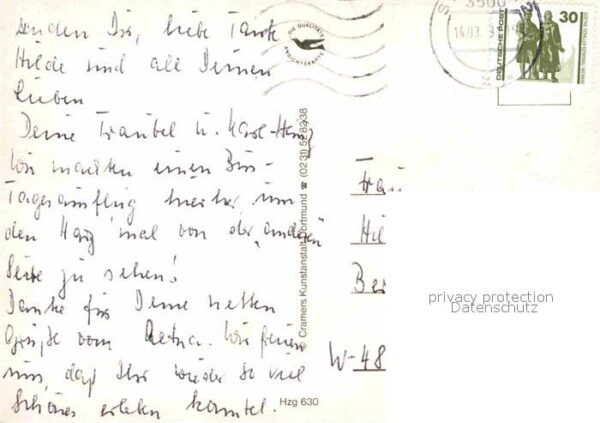 senden Dir, liebe Tante
Hilde und all Deinen
Lieben
Deine Traubel u. Karl-Heinz
Wir machten einen Bus-
Tagesausflug hierher, um
den Harz 'mal von der "anderen"
Seite zu sehen!
Danke für Deine netten
Grüße vom Aetna. Wir freuen
uns, daß Ihr wieder so viel
Schönes erleben konntet.
DIE QUALITÄTS
ANSICHTSKARTE
Cramers Kunstanstalt Dortmund ☎ (02 31)
Hzg 630
3500
14.03.
DEUTSCHE POST
30
Hil
Ber
W-48
privacy protection
Datenschutz